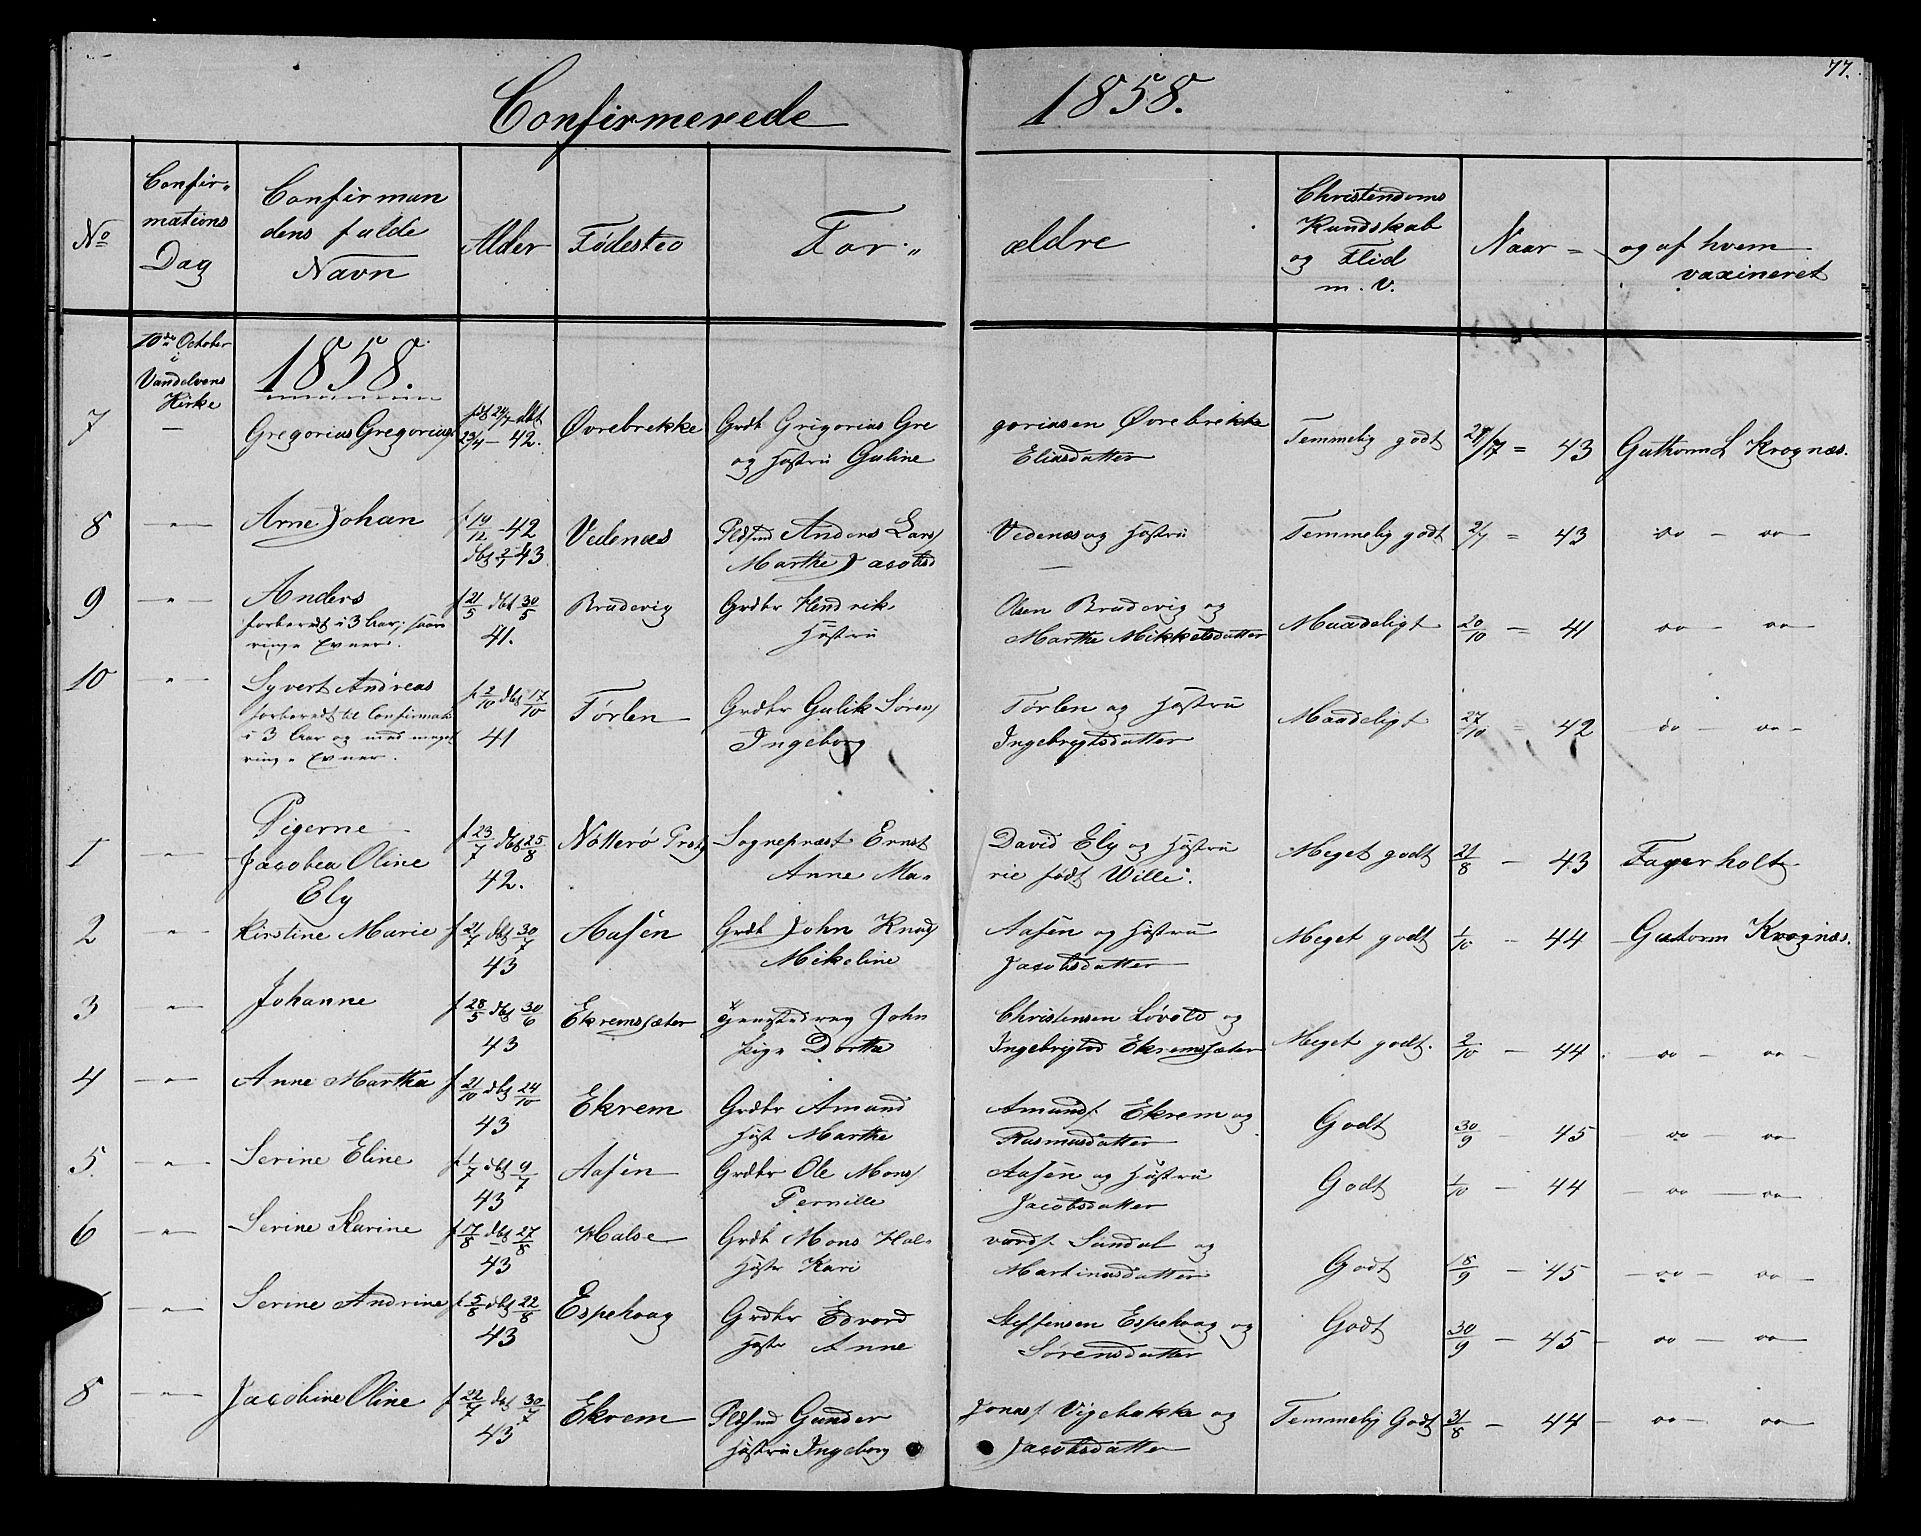 77.
Confirmerede 1858.
No
Confir„
mations
Dag
Confirman
dens fulde
Navn
Alder
Fødested
For„
ældre
Christendoms
Kundskab
og Flid
m. V.
Naar =
og af hvem
vaxineret
10de October
i
Vandelvens
Kirke
1858.
7 — Gregorius Gregorius/ født 24/7 dbt Øvrebrekke Grdt Grigorius Gre goriusen Øvrebrekke Temmelig godt 28/7 = 43 Guthorm L Krognæs.
23/4 - 42. og Hustru Guline Eliasdatter
8 — " — Arne Johan f 19/12 - 42 Vedenæs Pldsmd Anders Lars/ Vedenæs og Hustru Temmelig godt 2/7 = 43 do — do
dbt 2/7 43 Marthe Jacobsd —
9 — " — Anders f 21/5 dbt 30/5 Brudevig Grdbr Hendrik Olsen Brudevig og Maadeligt 20/10 = 41 do — do
forberedt i 3 Aar; saare
ringe Evner. 41. Hustru Marthe Mikkelsdatter
10 — " — Syvert Andreas f 2/10 dbt 17/10 Førlen Grdbr Gulik Søren/ Førlen og Hustru Maadeligt 27/10 = 42 do — do
forberedt til Confirmat
i 3 Aar og med meget 41 Ingeborg Ingebrigtsdatter
ringe Evner.
Pigerne
1 — " — Jacobea Oline f 23/7 dbt 25/8 Nøtterø Prstg Sognepræst Ernst David Ely og Hustru Meget godt 21/8 — 43 Fagerholt
Ely 42. Anne Ma= rie født Wille.
2 — " — Kirstine Marie f 21/7 dbt 30/7 Aasen Grdt John Knud/ Aasen og Hustru Meget godt 1/10 — 44 Gutorm Krognæs.
43 Mikeline Jacobsdatter
3 — " — Johanne f 28/5 dbt 30/6 Ekremsæter Tjenestedreng John Christensen Løvold og Meget godt. 2/10 — 44 do — do
43 Pige Dorthe Ingebrigtsd Ekremsæter
4 — " — Anne Martha f 21/10 dbt 24/10 Ekrem Grdbr Amund Amunds. Ekrem og Godt 30/9 — 45 do — do
43 Hust Marthe Rasmusdatter
5 — " — Serine Eline f 1/7 dbt 9/7 Aasen Grdbr Ole Mons/ Aasen og Hustru Godt 1/10 — 44 do — do
43 Pernille Jacobsdatter
6 — " — Serine Karine f 17/8 dbt 27/8 Halse Grdt Mons Hal= vards. Sundal og Godt 18/9 — 45 do — do
43 Hustr Kari Martinusdatter
— " — Serine Andrine f 5/8 dbt 22/8 Espehaag Grdbr Edvard Steffensen Espehaag og Godt 30/9 — 45 do — do
43 Hustr Anne Sørensdatter
8 — " — Jacobine Oline f 22/7 dbt 30/7 Ekrem Pldsmd Gunder Jonas/ Vigebakke og Temmelig Godt 31/8 — 44 do — do
43 Hustru Ingeborg Jacobsdatter